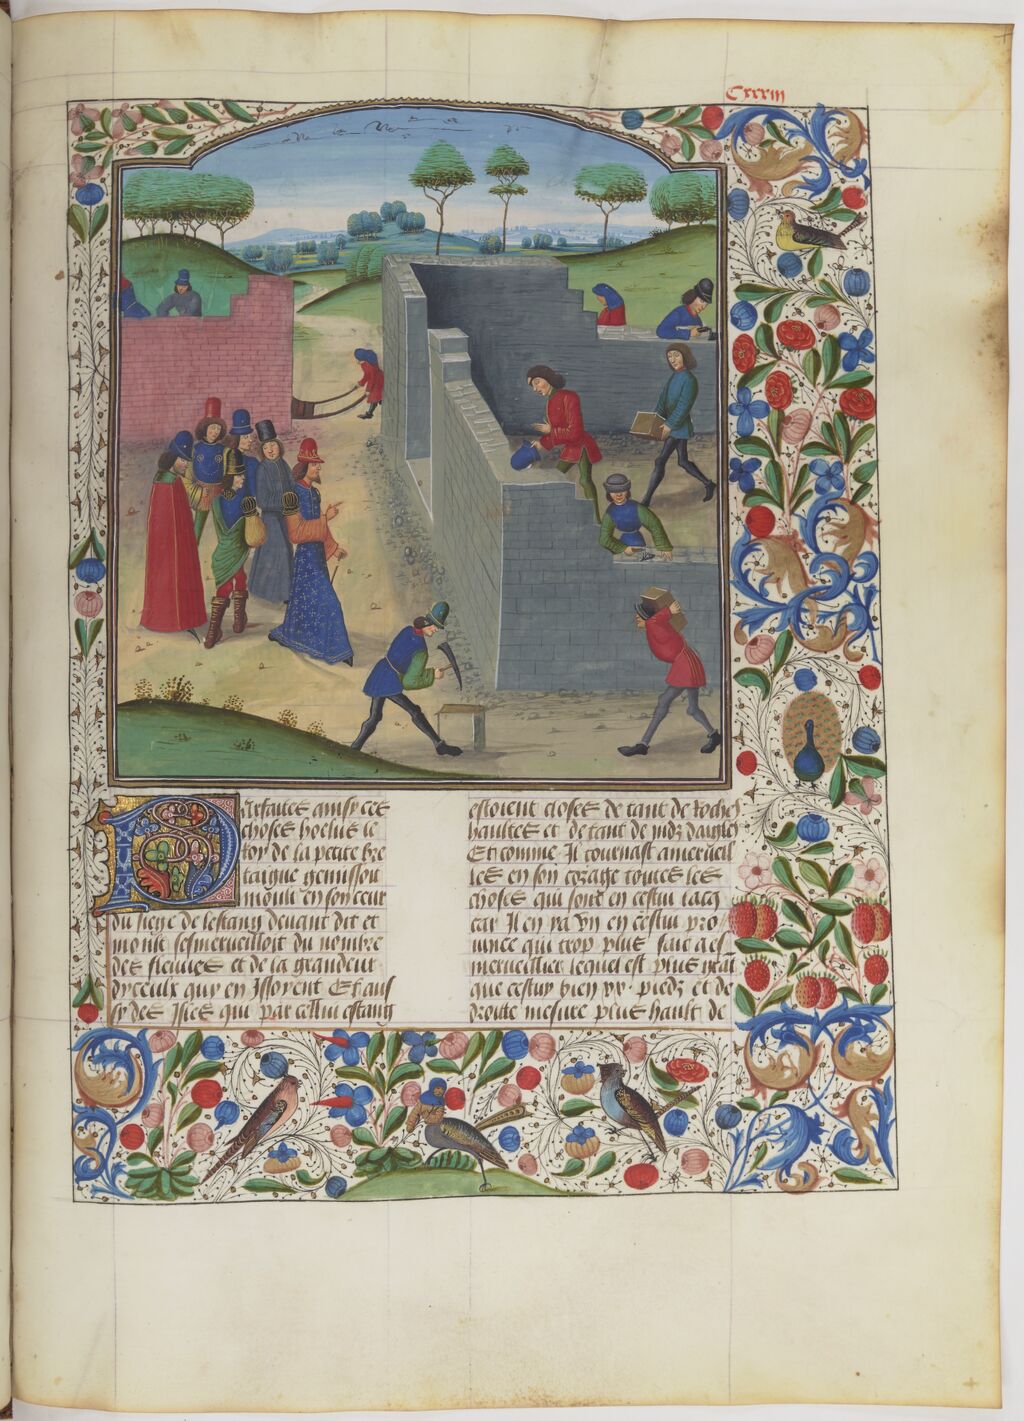 Cxxxiii
Arfaites ainsy ces
choses hoelus le
roy de la petite bre
taigne gemissoit
moult en son ceur
du siege de lestang deuant dit et
moult sesmerueilloit du nombre
des fleuues et de la grandeur
dyceulx quy en yssoyent Et aus
sy des isles qui par cellui estang
estoient closes de tant de roches
haultes et de tant de nidz daigles
Et comme il tournast a merueil
les en son corage toutes les
choses qui sont en cestui lacq
car il en ya vn en cestui pro
uince qui trop plus fait a es
merueillier lequel est plus grant
que cestuy bien xx piedz et de
droitte mesure plus hault de